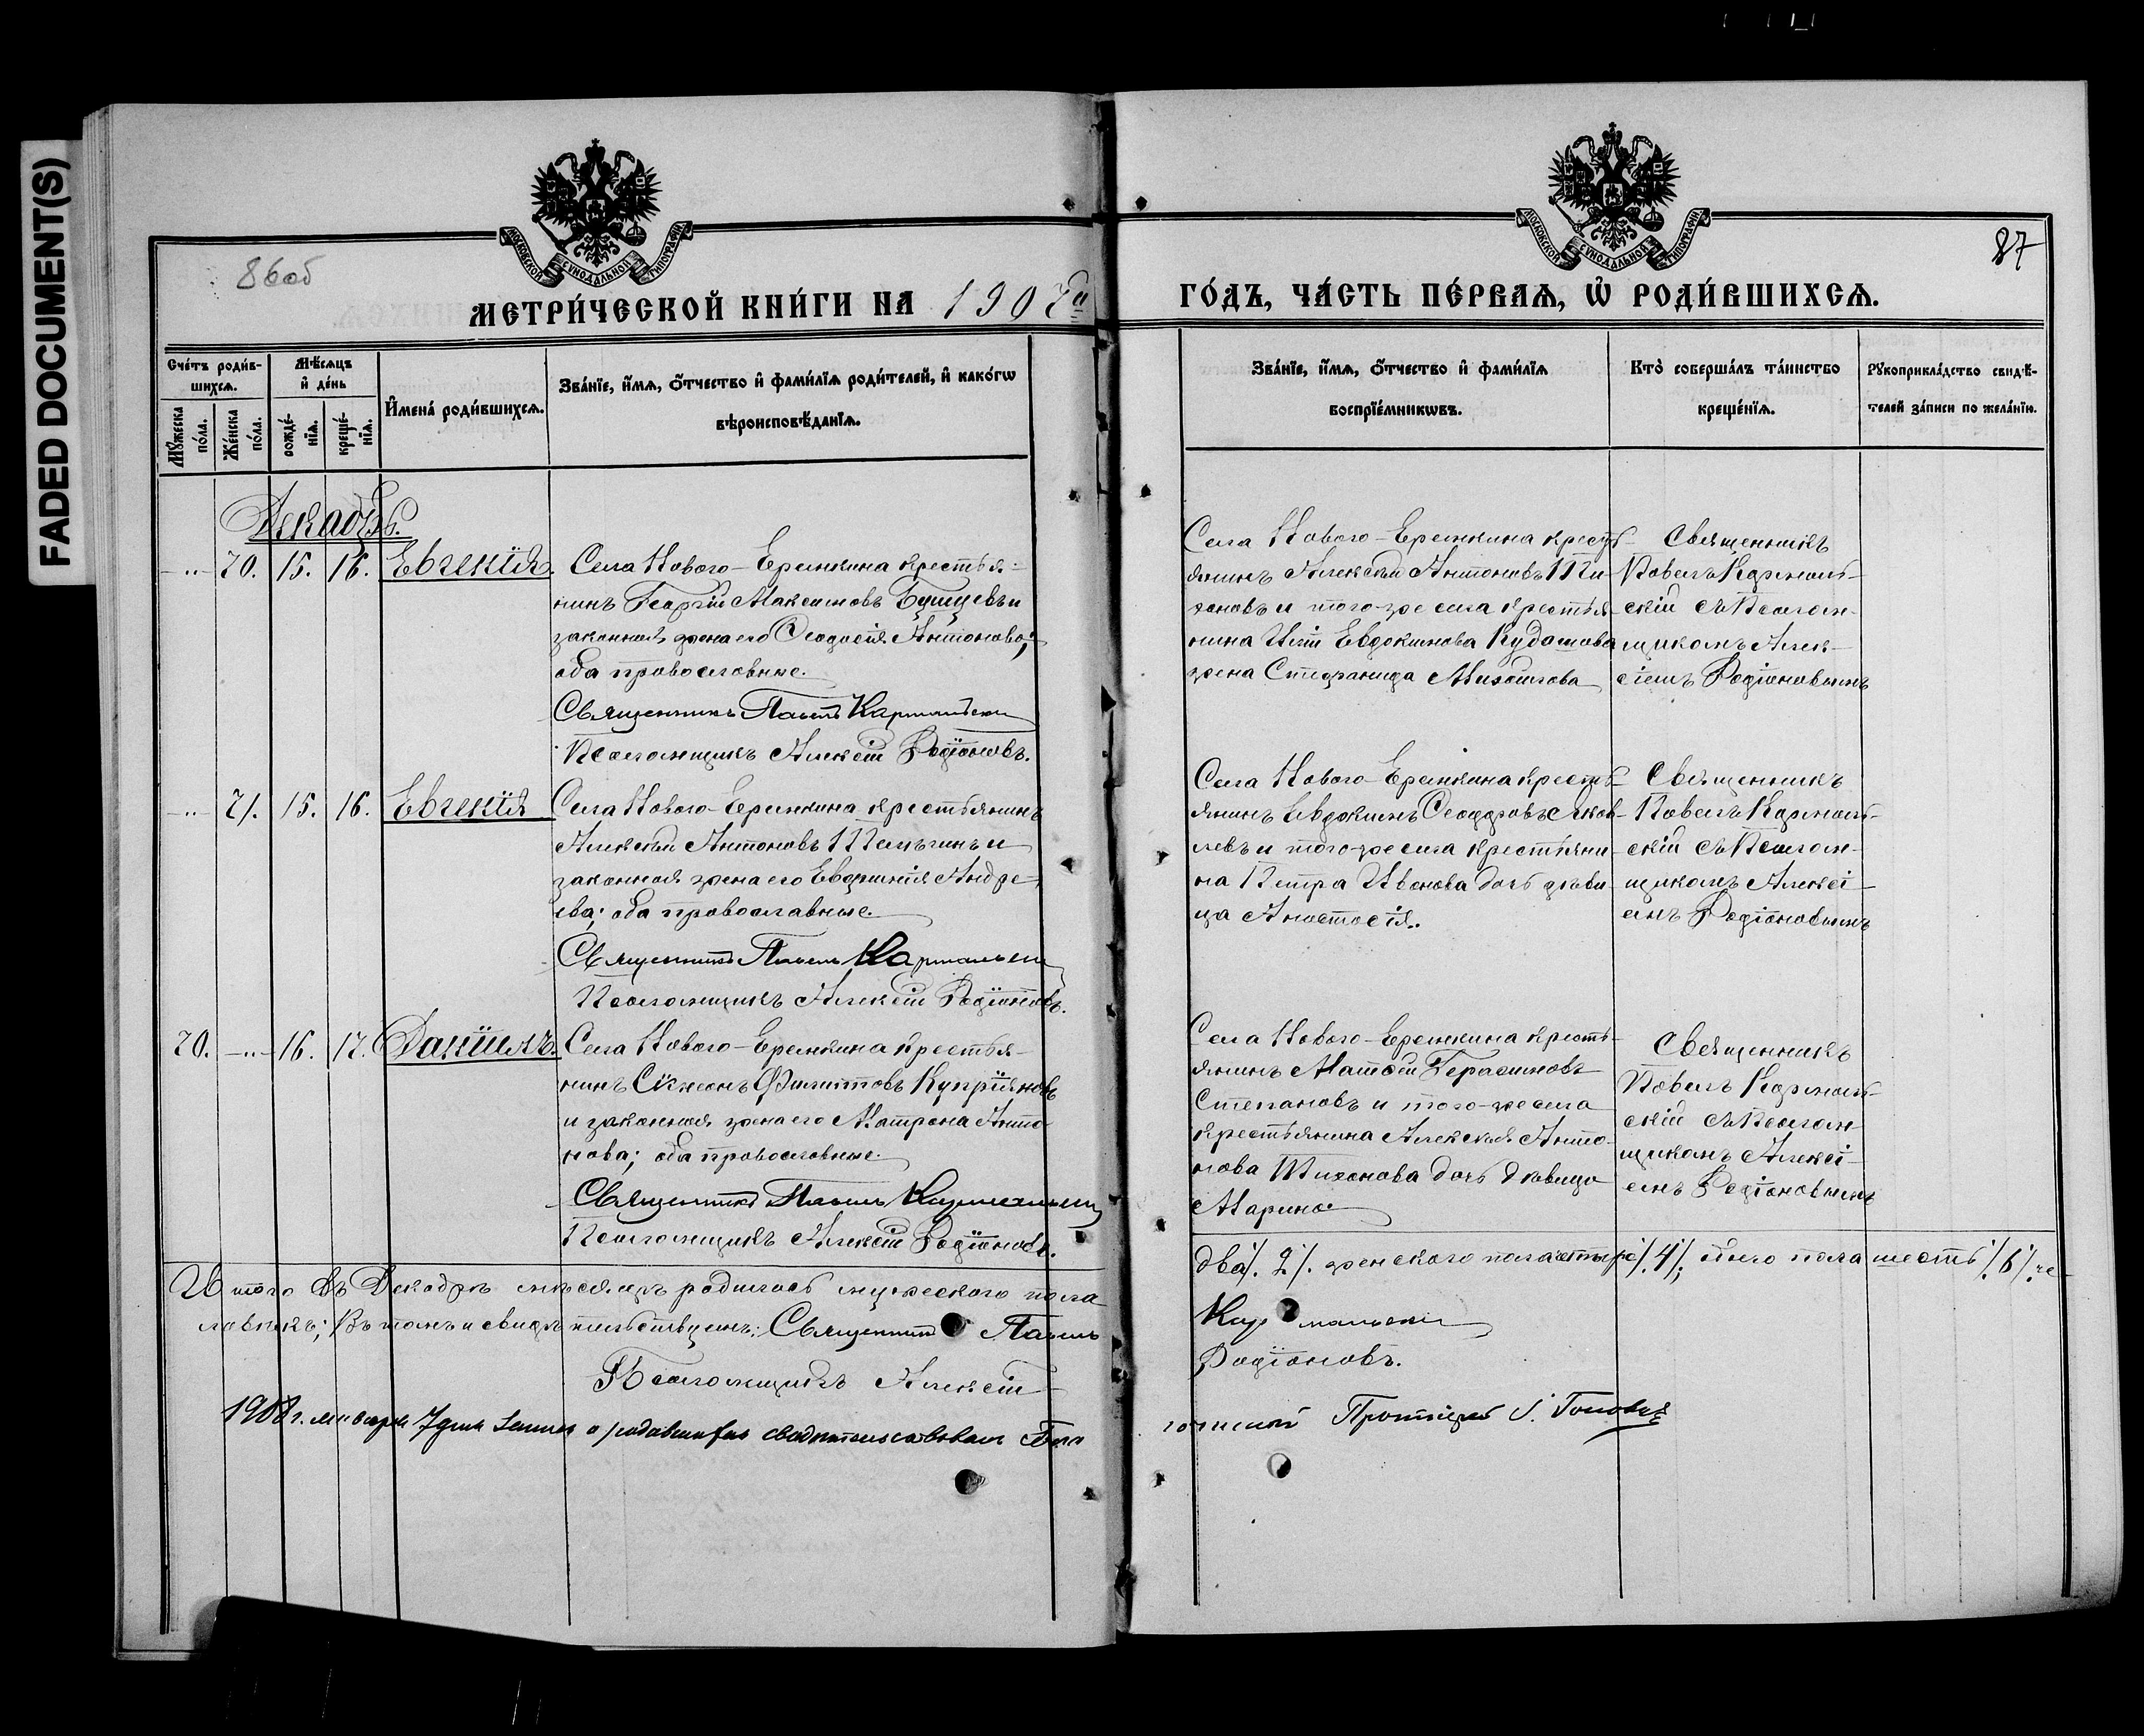 FADED DOCUMENT(S)
86об
87
МОСКОВСКОЙ СѴНОДАЛЬНОЙ ТИПОГРАФІИ
МОСКОВСКОЙ СѴНОДАЛЬНОЙ ТИПОГРАФІИ
МЕТРИ́ЧЕСКОЙ КНИ́ГИ НА 1907й
ГО́ДЪ, ЧА́СТЬ ПЕ́РВАѦ, Ѡ҆ РОДИ́ВШИХСѦ.
Сче́тъ роди́в-
шихсѧ.
Мꙋ́жеска по́ла.
Же́нска по́ла.
Мѣ́сѧцъ
и҆ де́нь
рожде́-нїѧ.
креще́-нїѧ.
И҆мена̀ роди́вшихсѧ.
Зва́нїе, и҆́мѧ, ѻ҆́тчество и҆ фами́лїѧ роди́телей, и҆ како́гѡ
вѣроисповѣ́данїѧ.
Зва́нїе, и҆́мѧ, ѻ҆́тчество и҆ фами́лїѧ
воспрїе́мникѡвъ.
Кто̀ соверша́лъ та́инство
креще́нїѧ.
Рꙋкоприкла́дство свидѣ́-
телей за́писи по жела́нїю.
Декабрь.
-„- 20. 15. 16. Евгенія.
Села Нового-Еремкина крестья-
нинъ Георгій Максимовъ и
законная жена его Феодосія Антонова;
оба православные.
Священникъ Павелъ Кармальскій
Псаломщикъ Алексій Родіоновъ.
Села Нового-Еремкина кресть-
янинъ Алексѣй Антоновъ Ти-
хоновъ и того-же села крестья-
нина Иліи Евдокимова Кудашова
жена Стефанида Михайлова
Священникъ
Павелъ Кармаль-
скій съ Псалом-
щикомъ Алек-
сіемъ Родіоновымъ
-„- 21. 15. 16. Евгенія
Села Нового-Еремкина крестьянинъ
Алексѣй Антоновъ и
законная жена его Евфимія Андре-
ева; оба православные.
Священникъ Павелъ Кармальскій
Псаломщикъ Алексій Родіоновъ.
Села Нового-Еремкина кресть-
янинъ Евдокимъ Феодоровъ Яков-
левъ и того-же села крестьяни-
на Петра Иванова дочь дѣви-
ца Анастасія.
Священникъ
Павелъ Кармаль-
скій съ Псалом-
щикомъ Алексі-
емъ Родіоновымъ
20. -„- 16. 17. Даніилъ.
Села Нового-Еремкина крестья-
нинъ Сѵмеонъ Филиповъ Купріяновъ
и законная жена его Матрона Анто-
нова; оба православные.
Священникъ Павелъ Кармальскій
Псаломщикъ Алексій Родіоновъ.
Села Нового-Еремкина кресть-
янинъ Матѳей Герасимовъ
Степановъ и того-же села
крестьянина Алексѣя Анто-
нова Тихонова дочь дѣвица
Марина
Священникъ
Павелъ Кармаль-
скій съ Псалом-
щикомъ Алексі-
емъ Родіоновымъ
Итого въ Декабрѣ мѣсяцѣ родилось мужеского пола
два /. 2 /. женского пола четыре /. 4 /. обоего пола шесть /. 6 /. че-
ловѣкъ; Въ томъ и свидѣтельствуемъ: Священникъ Павелъ
Кармальскій
Псаломщикъ Алексій
Родіоновъ.
1908 г. января 7 дня запись о родившихся свидѣтельствовалъ Бла-
гочинный Протоіерей І.